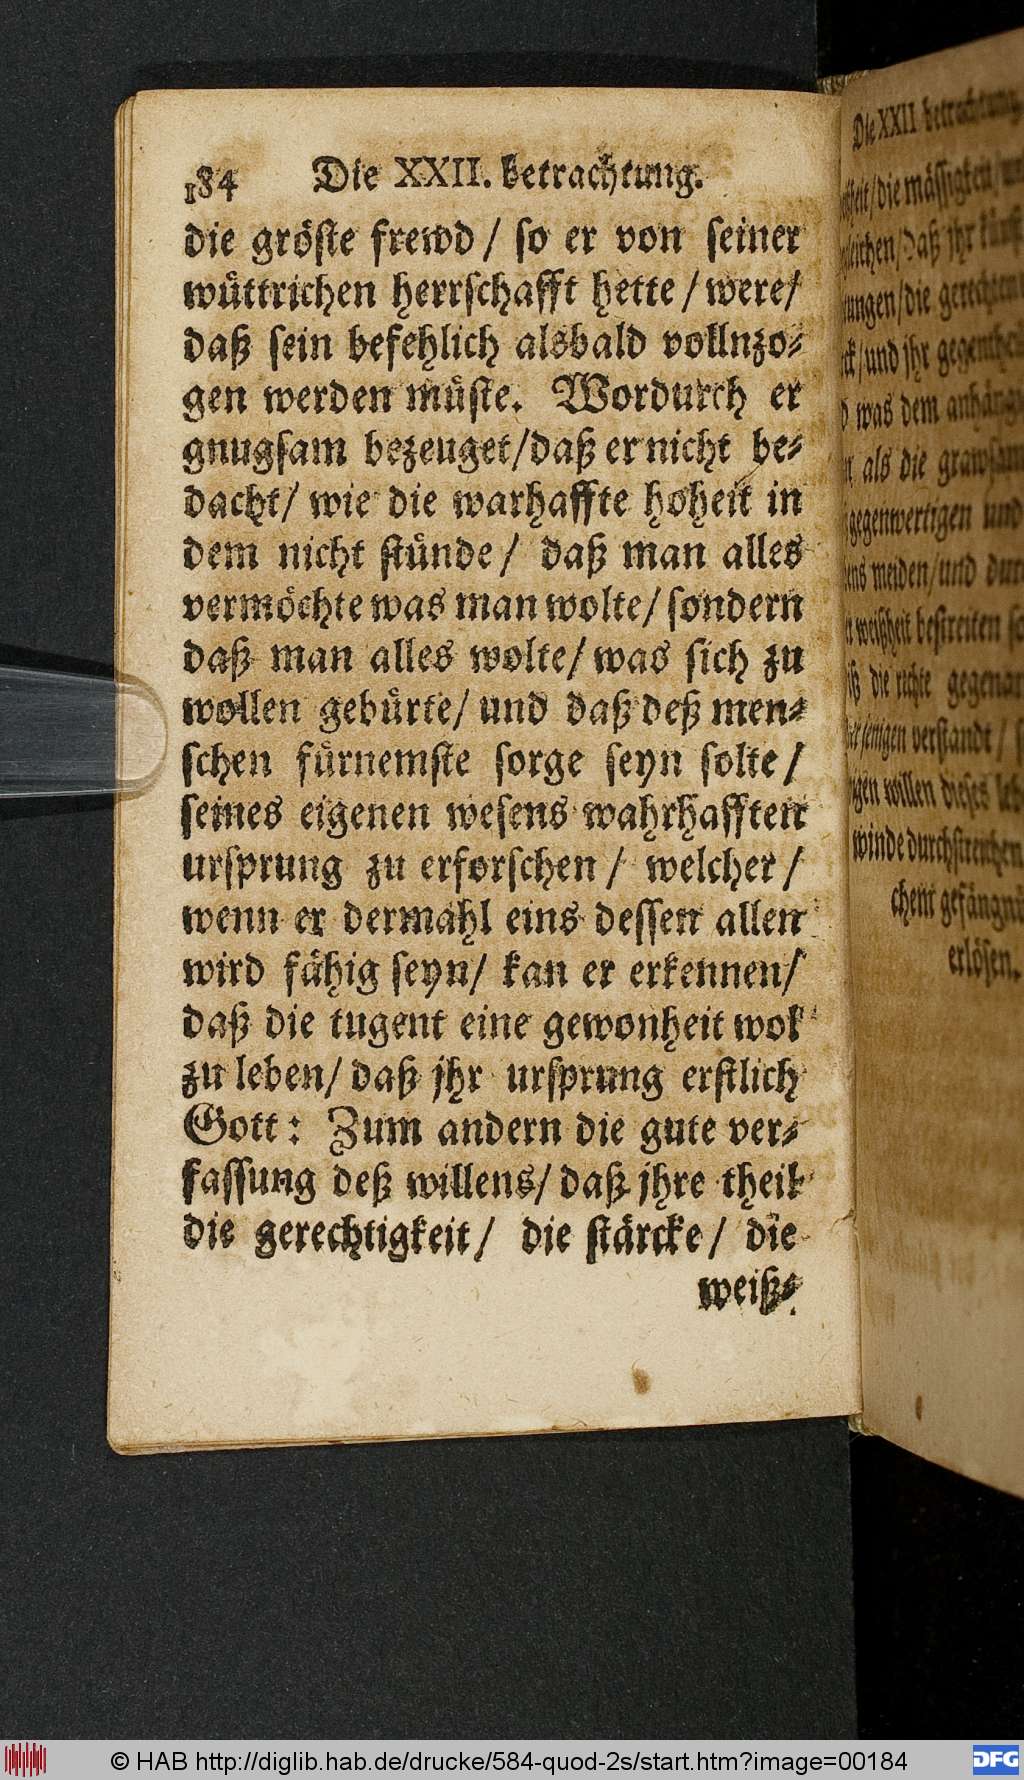 184 Die XXII. betrachtung.
die gröſte frewd / ſo er von ſeiner
wüttrichen herrſchafft hette / were/
daß ſein befehlich alsbald vollnzo-
gen werden müſte. Wordurch er
gnugſam bezeuget/daß er nicht be-
dacht/ wie die warhaffte hoheit in
dem nicht ſtünde / daß man alles
vermöchte was man wolte/ ſondern
daß man alles wolte/ was ſich zu
wollen gebürte/ und daß deß men-
ſchen fürnemſte ſorge ſeyn ſolte /
ſeines eigenen weſens wahrhafften
urſprung zu erforſchen / welcher /
wenn er dermahl eins deſſen allen
wird fähig ſeyn/ kan er erkennen/
daß die tugent eine gewonheit wol
zu leben/ daß jhr urſprung erſtlich
Gott: Zum andern die gute ver-
faſſung deß willens/ daß jhre theil
die gerechtigkeit / die ſtärcke / die
weiß-
Die XXII betrachtung
/die mäſſigkeit
daß jhr
/die
/und jhr
was dem
als die
gegenwertigen und
meiden/und
weißheit beſtreiten
die
verſtandt /
willen dieſes
winde
chem gefängnü
erlöſen.
© HAB http://diglib.hab.de/drucke/584-quod-2s/start.htm?image=00184
DFG